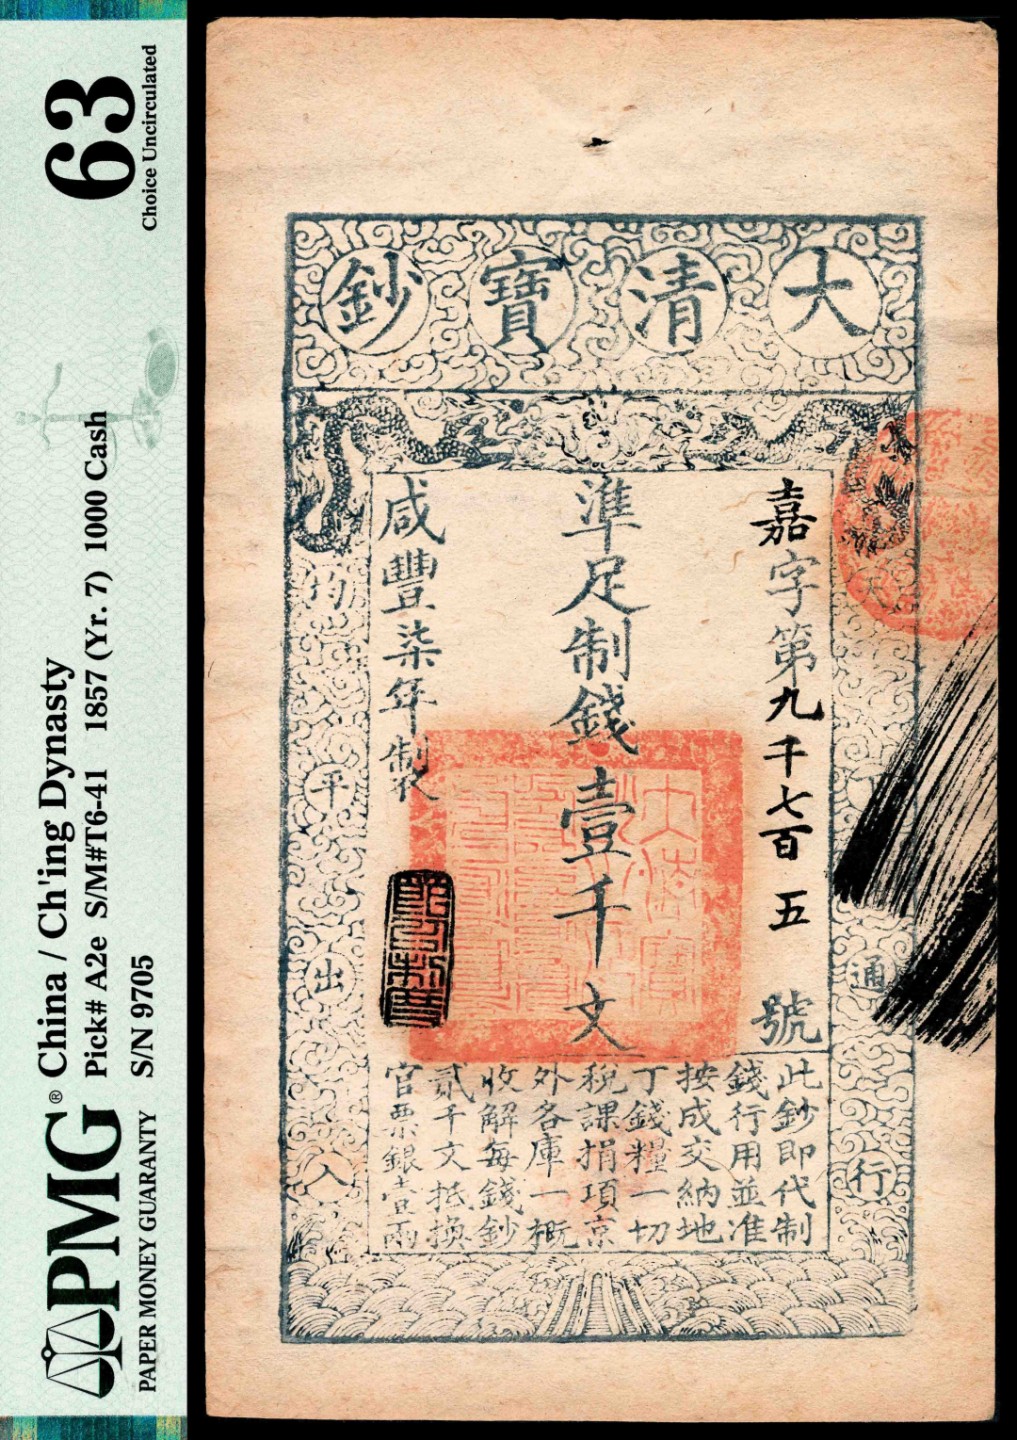 PMG® China / Ch'ing Dynasty
Pick# A2e S/M#T6-41 1857 (Yr. 7) 1000 Cash
PAPER MONEY GUARANTY S/N 9705
63
Choice Uncirculated
大清寶鈔
天下通行
均平出入
嘉字第九千七百五號
準足制錢壹千文
咸豐柒年製
此鈔即代制
錢行用並准
按成交納地
丁錢糧一切
稅課捐項京
外各庫一概
收解每錢鈔
貳千文抵換
官票銀壹兩